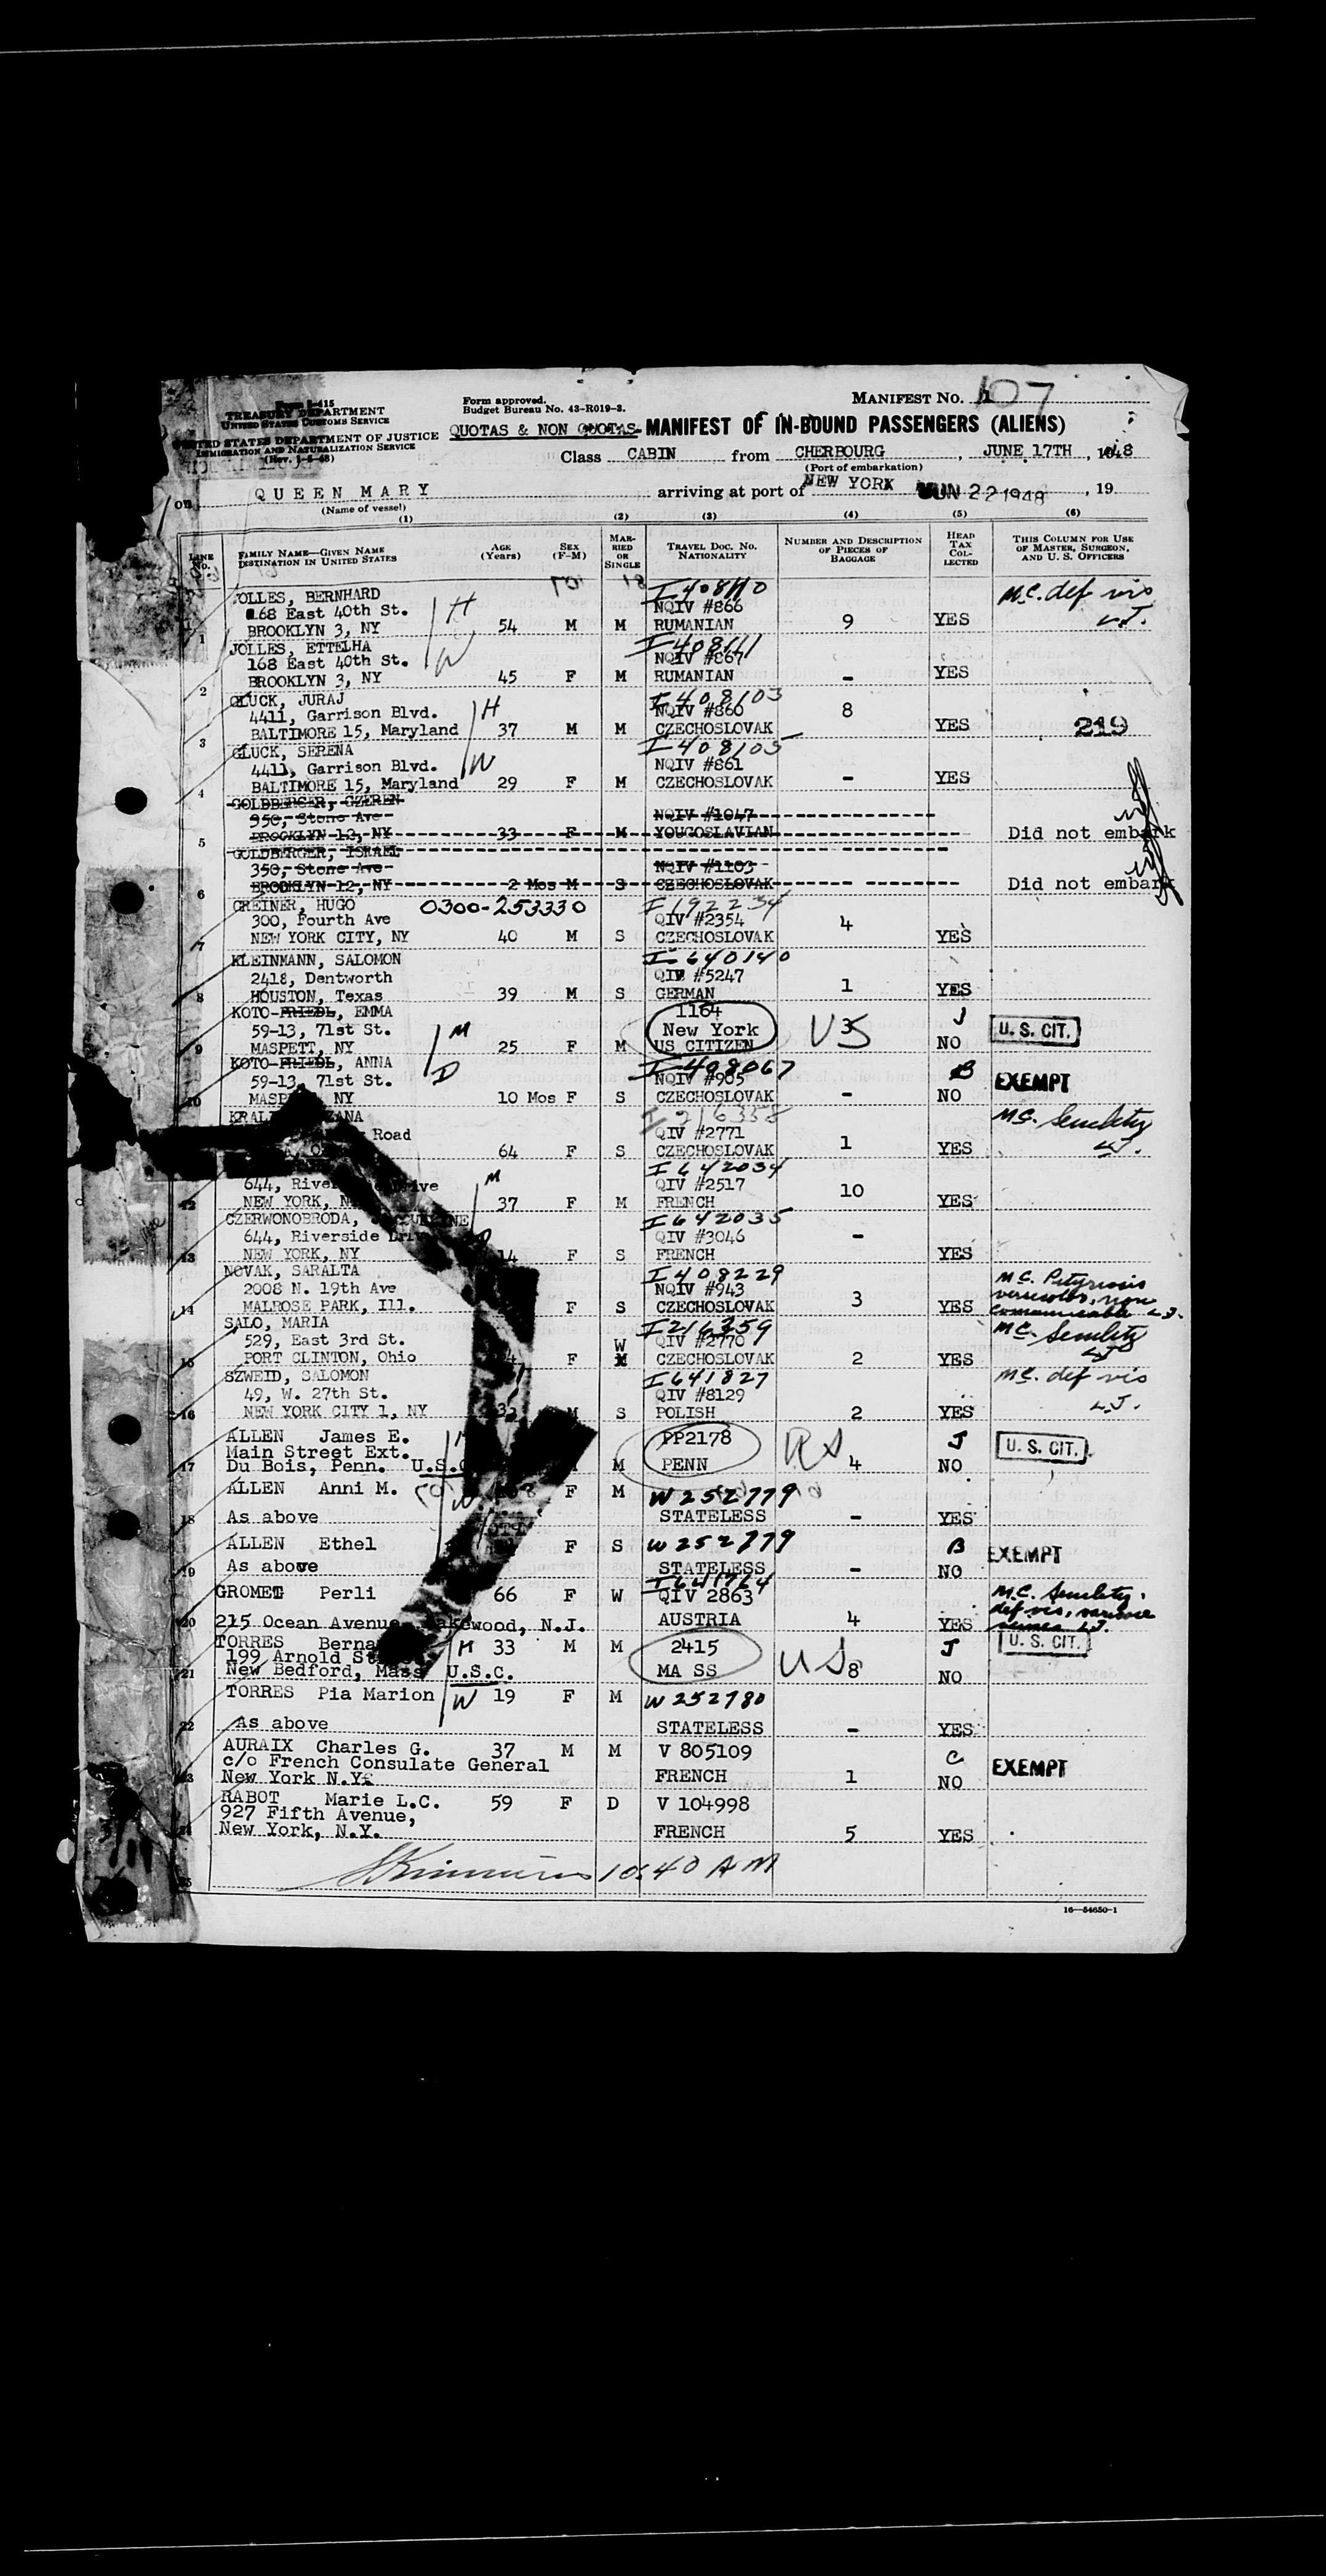 Form I-415
TREASURY DEPARTMENT
UNITED STATES CUSTOMS SERVICE
UNITED STATES DEPARTMENT OF JUSTICE
IMMIGRATION AND NATURALIZATION SERVICE
(Rev. 1-5-48)
Form approved.
Budget Bureau No. 43-R019-3.
MANIFEST NO. 107
QUOTAS & NON QUOTAS- MANIFEST OF IN-BOUND PASSENGERS (ALIENS)
Class CABIN from CHERBOURG, JUNE 17TH, 1948
(Port of embarkation)
on QUEEN MARY arriving at port of NEW YORK JUN 22 1948, 19
(Name of vessel)
(1) (2) (3) (4) (5) (6)
LINE NO. FAMILY NAME—GIVEN NAME DESTINATION IN UNITED STATES AGE (Years) SEX (F-M) MARRIED OR SINGLE TRAVEL DOC. NO. NATIONALITY NUMBER AND DESCRIPTION OF PIECES OF BAGGAGE HEAD TAX COLLECTED THIS COLUMN FOR USE OF MASTER, SURGEON, AND U. S. OFFICERS
JOLLES, BERNHARD I-408110 M.C. def vis
168 East 40th St. H NQIV #866 L.J.
1 BROOKLYN 3, NY 54 M M RUMANIAN 9 YES
JOLLES, ETTELHA I-408111
168 East 40th St. W NQIV #867
2 BROOKLYN 3, NY 45 F M RUMANIAN - YES
GLUCK, JURAJ I-408103
4411, Garrison Blvd. H NQIV #860 8
3 BALTIMORE 15, Maryland 37 M M CZECHOSLOVAK YES 219
GLUCK, SERENA I-408105
4411, Garrison Blvd. W NQIV #861
4 BALTIMORE 15, Maryland 29 F M CZECHOSLOVAK - YES
GOLDBERGER, CZEREN
950, Stone Ave NQIV #1047
5 BROOKLYN 12, NY 33 F M YOUGOSLAVIAN Did not embark
GOLDBERGER, ISRAEL
350, Stone Ave NQIV #1103
6 BROOKLYN 12, NY 2 Mos M S CZECHOSLOVAK Did not embark
GREINER, HUGO 0300-253330 I192234
300, Fourth Ave QIV #2354 4
7 NEW YORK CITY, NY 40 M S CZECHOSLOVAK YES
KLEINMANN, SALOMON I-640140
2418, Dentworth QIV #5247 1
8 HOUSTON, Texas 39 M S GERMAN YES
KOTO-FRIEDL, EMMA 1164 J
59-13, 71st St. M New York U. S. CIT.
9 MASPETT, NY 25 F M US CITIZEN NO
KOTO-FRIEDL, ANNA I-408067 B
59-13, 71st St. D NQIV #905 EXEMPT
10 NY 10 Mos F S CZECHOSLOVAK - NO
I216358 M.C. Senility
Road QIV #2771 1 L.J.
64 F S CZECHOSLOVAK YES
I642034
644, M QIV #2517 10
12 NEW YORK, 37 F M FRENCH YES
CZERWONOBRODA, I642035
644, Riverside QIV #3046 -
13 NEW YORK, NY 14 F S FRENCH YES
NOVAK, SARALTA I408229 M.C. Pityriasis
2008 N. 19th Ave NQIV #943 3 versicolor, non
14 MALROSE PARK, Ill. F S CZECHOSLOVAK YES communicable L.J.
SALO, MARIA I216359 M.C. Senility
529, East 3rd St. W QIV #2770 L.J.
15 PORT CLINTON, Ohio F M CZECHOSLOVAK 2 YES
SZWEID, SALOMON I641827 M.C. def vis
49, W. 27th St. QIV #8129 L.J.
16 NEW YORK CITY 1, NY S POLISH 2 YES
ALLEN James E. PP2178 J U. S. CIT.
Main Street Ext.
17 Du Bois, Penn. M PENN 4 NO
ALLEN Anni M. W F M W252779
18 As above STATELESS - YES
ALLEN Ethel F S W252779 B EXEMPT
19 As above STATELESS - NO
I641764
GROMET Perli 66 F W QIV 2863 M.C. Senility.
def vis, varicose
20 215 Ocean Avenue, Lakewood, N.J. AUSTRIA 4 YES L.J.
TORRES H 33 M M 2415 J U. S. CIT.
199 Arnold
21 New Bedford, Mass U.S.C. MA SS US 8 NO
TORRES Pia Marion W 19 F M W252780
22 As above STATELESS - YES
AURAIX Charles G. 37 M M V 805109 C EXEMPT
c/o French Consulate General
23 New York N.Y. FRENCH 1 NO
RABOT Marie L.C. 59 F D V 104998
927 Fifth Avenue,
24 New York, N.Y. FRENCH 5 YES
10:40 AM
16—54650-1